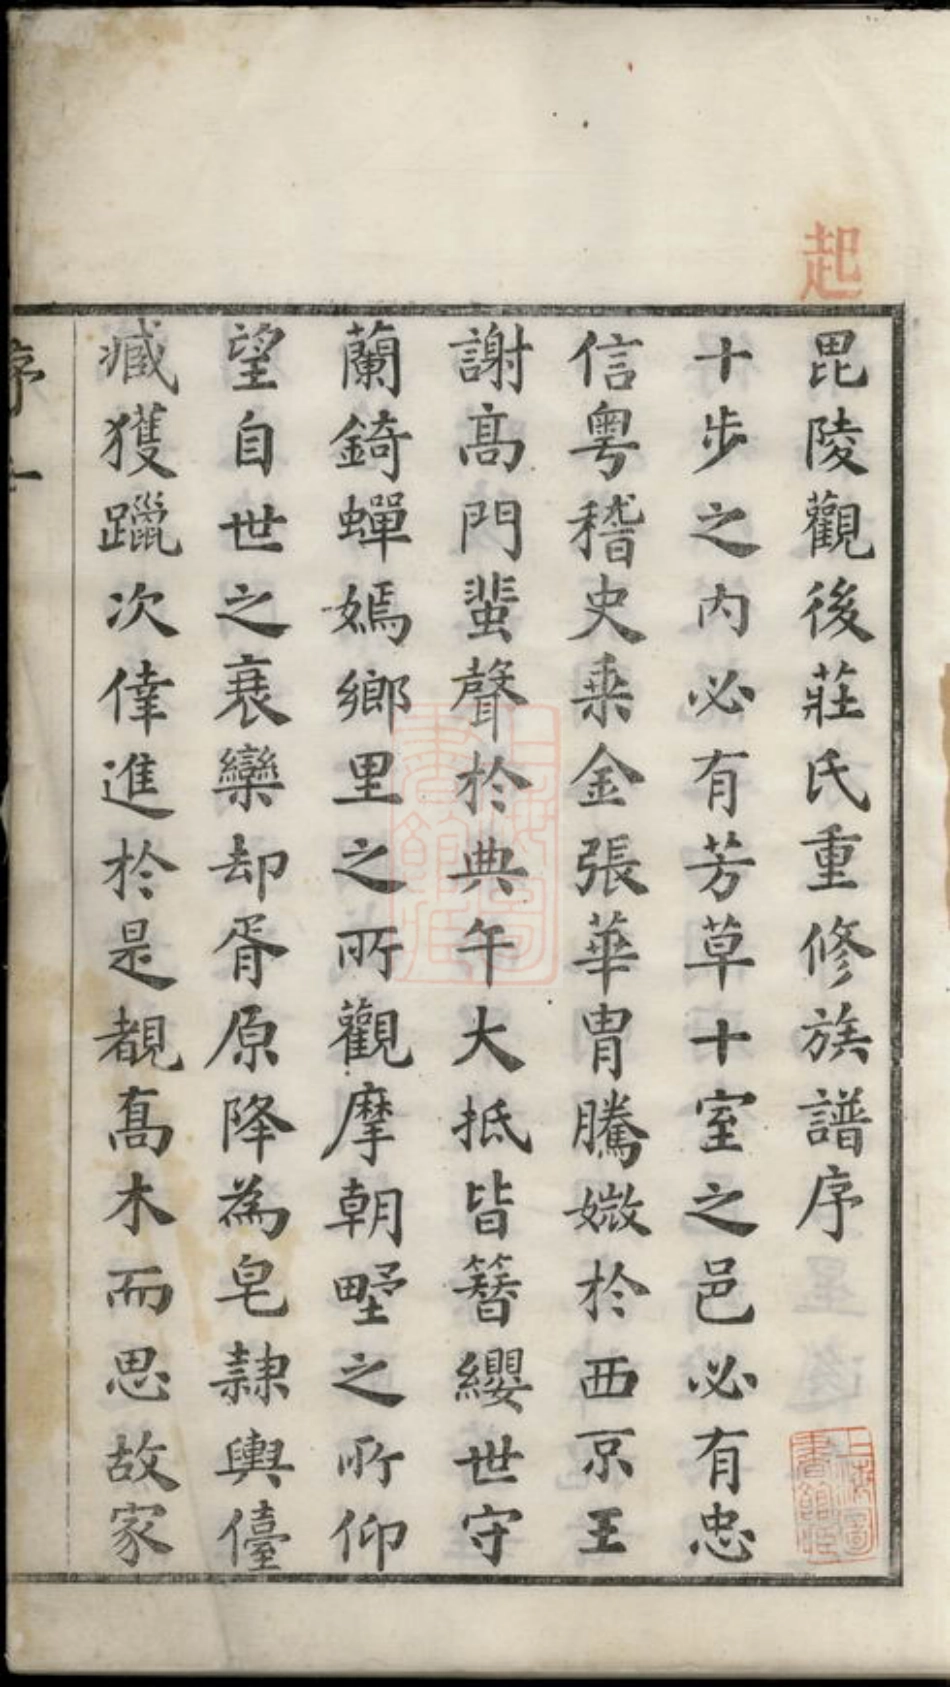 起
毘陵觀後莊氏重修族譜序
十步之內必有芳草十室之邑必有忠
信粵稽史乘金張華胄騰媺於西京王
謝高門蜚聲於典午大抵皆簪纓世守
蘭錡蟬嫣鄉里之所觀摩朝野之所仰
望自世之衰欒却胥原降為皂隷輿儓
臧獲躐次倖進於是覩喬木而思故家
序 一
上海圖書館藏
上海圖書館藏